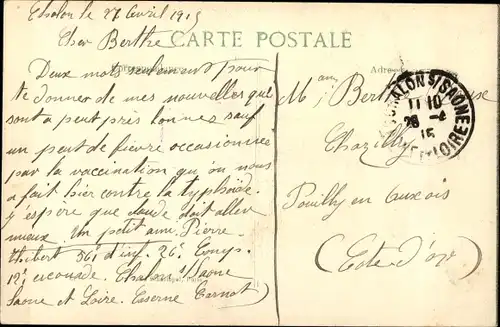 Chalon le 27 Avril 1915
Cher Berthe
CARTE POSTALE
Deux mots seulement pour
te donner de mes nouvelles qui
sont a peut près bonnes sauf
un peut de fièvre occasionnee
par la vaccination qui on nous
a fait hier contre la typhoïde
j'espère que Claude doit aller
mieux. Un petit ami Pierre
Hibert 56e d'inf. 26e Comp.
12e escouade. Chalon s/Saone
Saone et Loire (Caserne Carnot)
CHALON S/SAONE
11 10
28 -4
15
ET-LOIRE
Mam Berthe
Chazilly
Pouilly en Auxois
(Cote d'or)